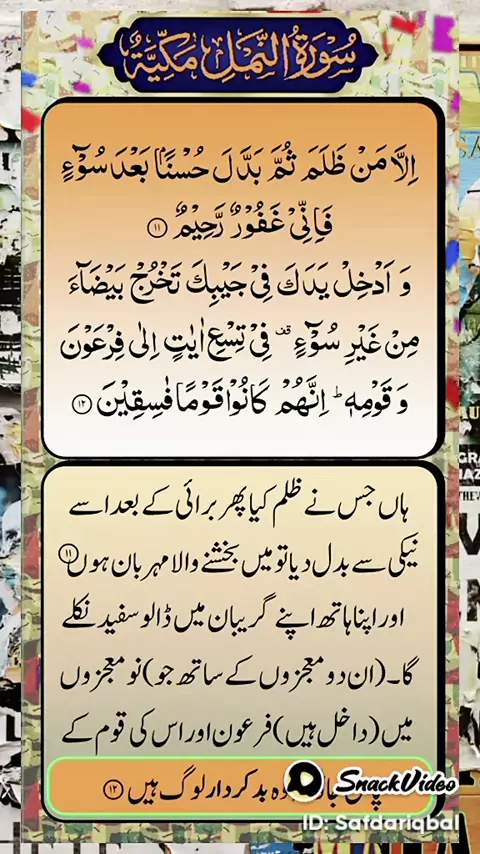 سُوْرَةُ النَّمْلِ مَكِّيَّةٌ
اِلَّا مَنْ ظَلَمَ ثُمَّ بَدَّلَ حُسْنًۢا بَعْدَ سُوْٓءٍ
فَاِنِّیْ غَفُوْرٌ رَّحِیْمٌ ۝۱۱
وَ اَدْخِلْ یَدَكَ فِیْ جَیْبِكَ تَخْرُجْ بَیْضَآءَ
مِنْ غَیْرِ سُوْٓءٍ ۫ فِیْ تِسْعِ اٰیٰتٍ اِلٰی فِرْعَوْنَ
وَ قَوْمِهٖ ؕ اِنَّهُمْ كَانُوْا قَوْمًا فٰسِقِیْنَ ۝۱۲
ہاں جس نے ظلم کیا پھر برائی کے بعد اسے
نیکی سے بدل دیا تو میں بخشنے والا مہربان ہوں ۝۱۱
اور اپنا ہاتھ اپنے گریبان میں ڈالو سفید نکلے
گا۔ (ان دو معجزوں کے ساتھ جو) نو معجزوں
میں (داخل ہیں) فرعون اور اس کی قوم کے
بدکردار لوگ ہیں ۝۱۲
SnackVideo
ID: Safdariqbal